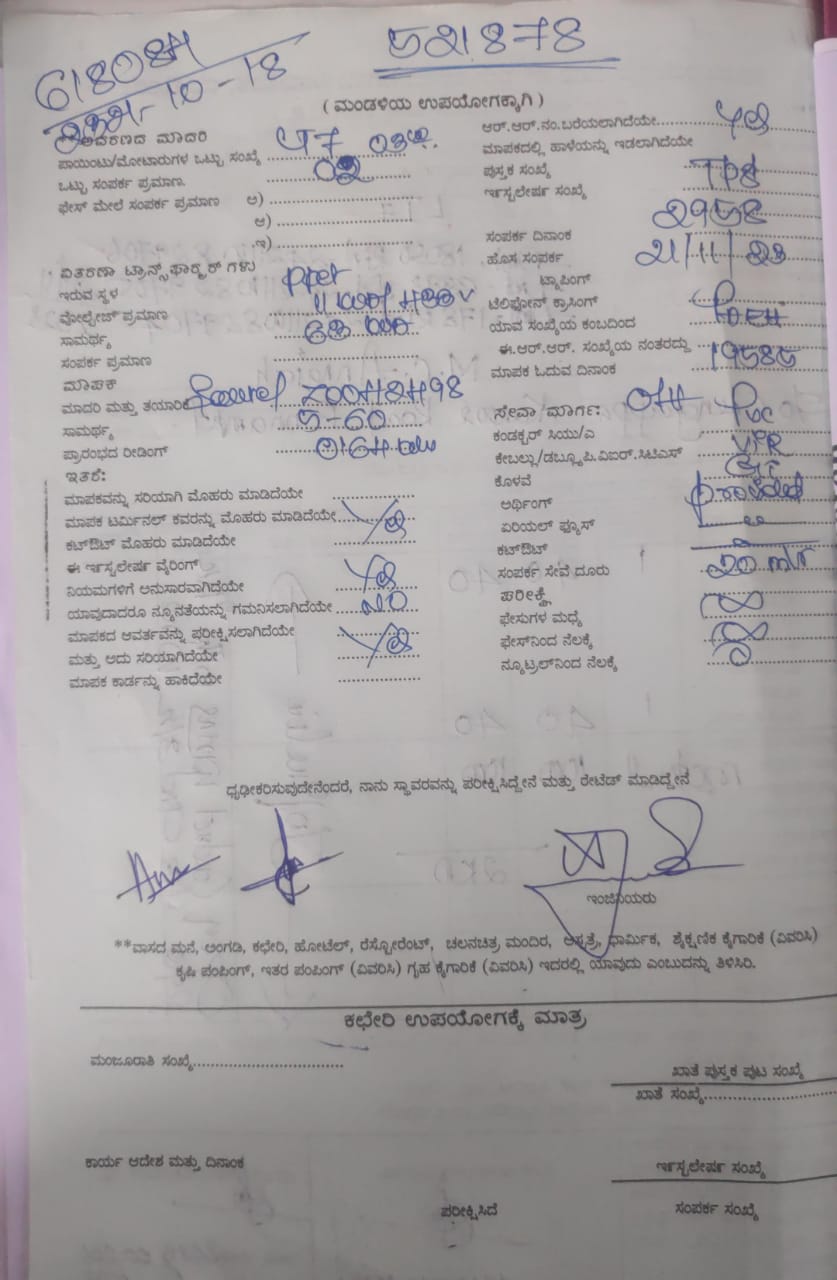 618084
521878
( ಮಂಡಳಿಯ ಉಪಯೋಗಕ್ಕಾಗಿ )
ಆವರಣದ ಮಾದರಿ
ಪಾಯಿಂಟು/ಮೋಟಾರುಗಳ ಒಟ್ಟು ಸಂಖ್ಯೆ
ಒಟ್ಟು ಸಂಪರ್ಕ ಪ್ರಮಾಣ.
ಫೇಸ್ ಮೇಲೆ ಸಂಪರ್ಕ ಪ್ರಮಾಣ ಅ)
ಆ)
ಇ)
ವಿತರಣಾ ಟ್ರಾನ್ಸ್‌ಫಾರ್ಮರ್ ಗಳು
ಇರುವ ಸ್ಥಳ
ವೋಲ್ಟೇಜ್ ಪ್ರಮಾಣ
ಸಾಮರ್ಥ್ಯ 63
ಸಂಪರ್ಕ ಪ್ರಮಾಣ
ಮಾಪಕ
ಮಾದರಿ ಮತ್ತು ತಯಾರಿಕೆ
ಸಾಮರ್ಥ್ಯ 5-60
ಪ್ರಾರಂಭದ ರೀಡಿಂಗ್
ಇತರೆ:
ಮಾಪಕವನ್ನು ಸರಿಯಾಗಿ ಮೊಹರು ಮಾಡಿದೆಯೇ
ಮಾಪಕ ಟರ್ಮಿನಲ್ ಕವರನ್ನು ಮೊಹರು ಮಾಡಿದೆಯೇ
ಕಟ್‌ಔಟ್ ಮೊಹರು ಮಾಡಿದೆಯೇ
ಈ ಇನ್‌ಸ್ಟಲೇಷನ್ ವೈರಿಂಗ್
ನಿಯಮಗಳಿಗೆ ಅನುಸಾರವಾಗಿದೆಯೇ Yes
ಯಾವುದಾದರೂ ನ್ಯೂನತೆಯನ್ನು ಗಮನಿಸಲಾಗಿದೆಯೇ NO
ಮಾಪಕದ ಆವರ್ತವನ್ನು ಪರೀಕ್ಷಿಸಲಾಗಿದೆಯೇ
ಮತ್ತು ಅದು ಸರಿಯಾಗಿದೆಯೇ Yes
ಮಾಪಕ ಕಾರ್ಡನ್ನು ಹಾಕಿದೆಯೇ
ಆರ್.ಆರ್.ನಂ.ಬರೆಯಲಾಗಿದೆಯೇ Yes
ಮಾಪಕದಲ್ಲಿ ಹಾಳೆಯನ್ನು ಇಡಲಾಗಿದೆಯೇ
ಪುಸ್ತಕ ಸಂಖ್ಯೆ
ಇನ್‌ಸ್ಟಲೇಷನ್ ಸಂಖ್ಯೆ
2958
ಸಂಪರ್ಕ ದಿನಾಂಕ
ಹೊಸ ಸಂಪರ್ಕ 21/11/23
ಟ್ಯಾಪಿಂಗ್
ಟೆಲಿಫೋನ್ ಕ್ರಾಸಿಂಗ್
ಯಾವ ಸಂಖ್ಯೆಯ ಕಂಬದಿಂದ
ಈ.ಆರ್.ಆರ್. ಸಂಖ್ಯೆಯ ನಂತರದ್ದು 19585
ಮಾಪಕ ಓದುವ ದಿನಾಂಕ
ಸೇವಾ ಮಾರ್ಗ: OH
ಕಂಡಕ್ಟರ್ ಸಿಯು/ಎ PVC
ಕೇಬಲ್ಲು/ಡಬ್ಲೂ.ಪಿ.ವಿಐಆರ್.ಸಿಟಿಎಸ್ VIR
ಕೊಳವೆ GI
ಅರ್ಥಿಂಗ್ provided
ಏರಿಯಲ್ ಫ್ಯೂಸ್
ಕಟ್‌ಔಟ್
ಸಂಪರ್ಕ ಸೇವೆ ದೂರು 20 mtr
ಪರೀಕ್ಷೆ
ಫೇಸುಗಳ ಮಧ್ಯೆ
ಫೇಸ್‌ನಿಂದ ನೆಲಕ್ಕೆ
ನ್ಯೂಟ್ರಲ್‌ನಿಂದ ನೆಲಕ್ಕೆ
ಧೃಢೀಕರಿಸುವುದೇನೆಂದರೆ, ನಾನು ಸ್ಥಾವರವನ್ನು ಪರೀಕ್ಷಿಸಿದ್ದೇನೆ ಮತ್ತು ರೇಟೆಡ್ ಮಾಡಿದ್ದೇನೆ
ಇಂಜಿನಿಯರು
**ವಾಸದ ಮನೆ, ಅಂಗಡಿ, ಕಛೇರಿ, ಹೋಟೆಲ್, ರೆಸ್ಟೋರೆಂಟ್, ಚಲನಚಿತ್ರ ಮಂದಿರ, ಆಸ್ಪತ್ರೆ, ಧಾರ್ಮಿಕ, ಶೈಕ್ಷಣಿಕ ಕೈಗಾರಿಕೆ (ವಿವರಿಸಿ)
ಕೃಷಿ ಪಂಪಿಂಗ್, ಇತರ ಪಂಪಿಂಗ್ (ವಿವರಿಸಿ) ಗೃಹ ಕೈಗಾರಿಕೆ (ವಿವರಿಸಿ) ಇದರಲ್ಲಿ ಯಾವುದು ಎಂಬುದನ್ನು ತಿಳಿಸಿರಿ.
ಕಛೇರಿ ಉಪಯೋಗಕ್ಕೆ ಮಾತ್ರ
ಮಂಜೂರಾತಿ ಸಂಖ್ಯೆ
ಖಾತೆ ಪುಸ್ತಕ ಪುಟ ಸಂಖ್ಯೆ
ಖಾತೆ ಸಂಖ್ಯೆ
ಕಾರ್ಯ ಆದೇಶ ಮತ್ತು ದಿನಾಂಕ
ಇನ್‌ಸ್ಟಲೇಷನ್ ಸಂಖ್ಯೆ
ಪರೀಕ್ಷಿಸಿದೆ
ಸಂಪರ್ಕ ಸಂಖ್ಯೆ